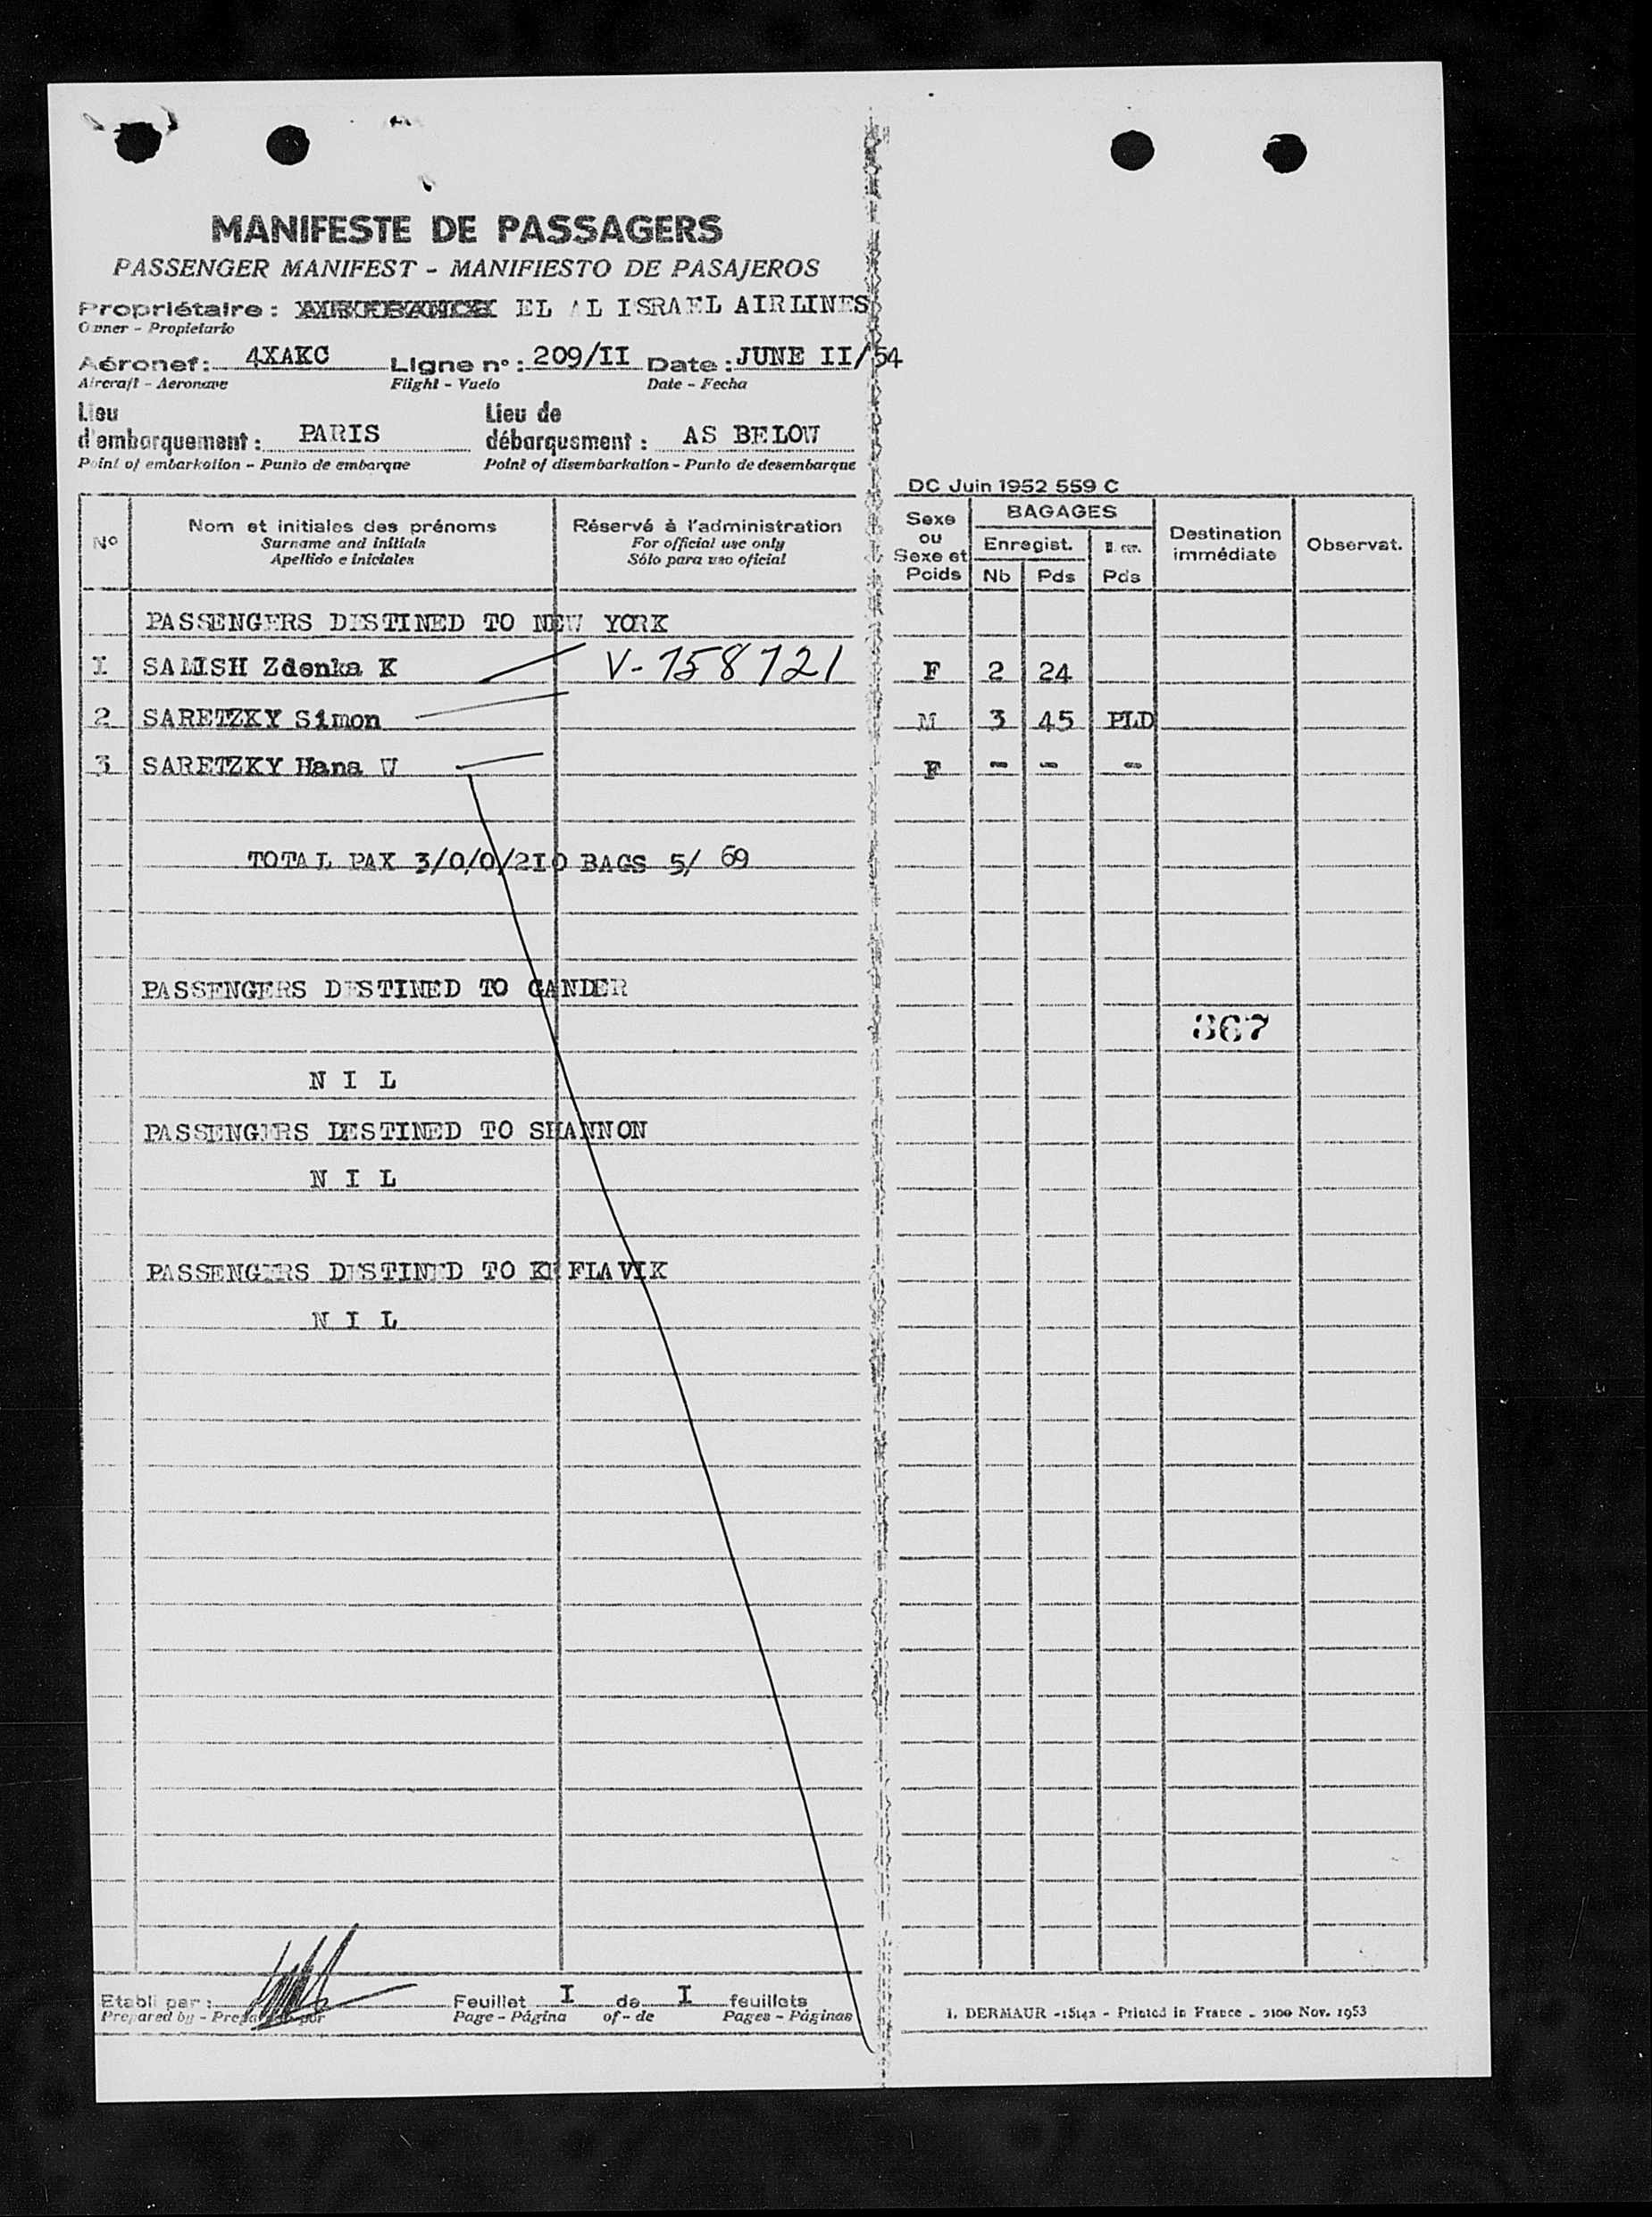 MANIFESTE DE PASSAGERS
PASSENGER MANIFEST - MANIFIESTO DE PASAJEROS
Propriétaire : EL AL ISRAEL AIRLINES
Owner - Propietario
Aéronef: 4XAKC Ligne n° : 209/II Date : JUNE II/54
Aircraft - Aeronave Flight - Vuelo Date - Fecha
Lieu d'embarquement : PARIS Lieu de débarquement : AS BELOW
Point of embarkation - Punto de embarque Point of disembarkation - Punto de desembarque
DC Juin 1952 559 C
N° Nom et initiales des prénoms Réservé à l'administration Sexe ou Sexe et Poids BAGAGES Destination immédiate Observat.
Surname and initials For official use only Enregist.
Apellido e iniciales Sólo para uso oficial Nb Pds Pds
PASSENGERS DESTINED TO NEW YORK
I SALISH Zdenka K V-758721 F 2 24
2 SARETZKY Simon M 3 45 PLD
3 SARETZKY Hana W F - - -
TOTAL PAX 3/0/0/210 BAGS 5/ 69
PASSENGERS DESTINED TO GANDER
367
N I L
PASSENGERS DESTINED TO SHANNON
N I L
PASSENGERS DESTINED TO KEFLAVIK
N I L
Etabli par : Feuillet I de I feuillets
Prepared by - Page - Página of - de Pages - Páginas
I. DERMAUR - - Printed in France - Nov. 1953